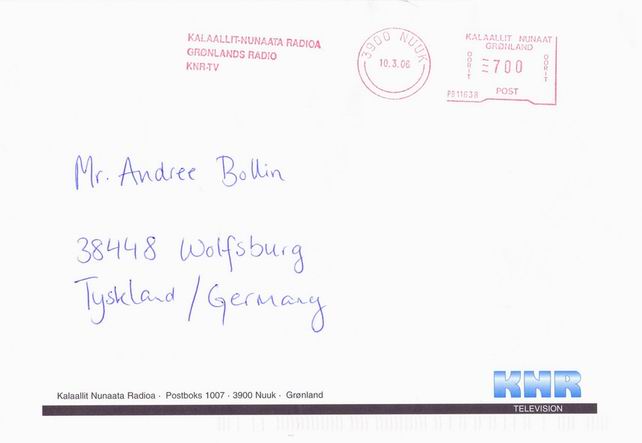 KALAALLIT-NUNAATA RADIOA
GRØNLANDS RADIO
KNR-TV
3900 NUUK
10.3.06
KALAALLIT NUNAAT
GRØNLAND
OQRIT
700
OQRIT
PB11638
POST
Mr. Andree Bollin
38448 Wolfsburg
Tyskland / Germany
KNR
Kalaallit Nunaata Radioa · Postboks 1007 · 3900 Nuuk · Grønland
TELEVISION